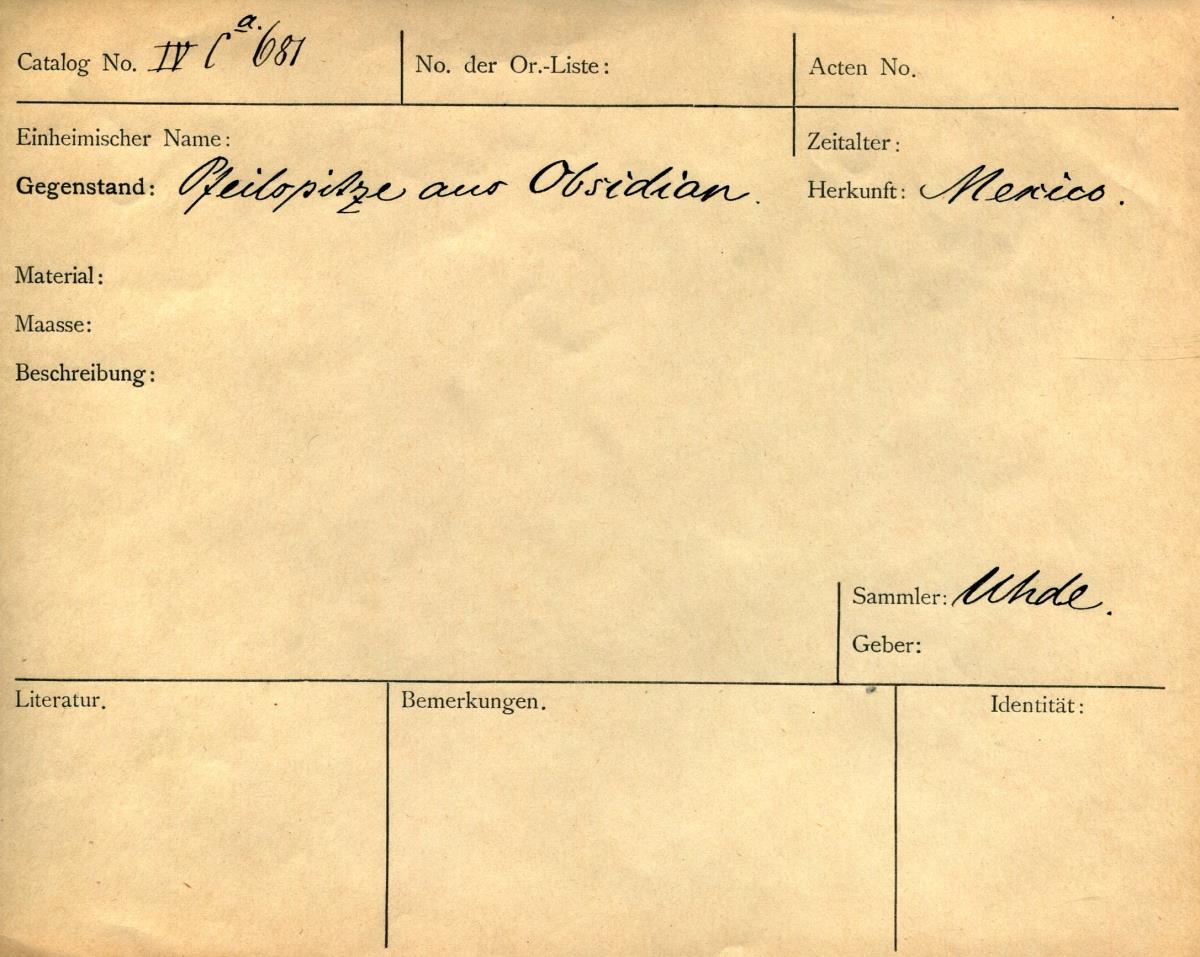 Catalog No. IV Ca. 681
No. der Or.-Liste:
Acten No.
Einheimischer Name:
Zeitalter:
Gegenstand: Pfeilspitze aus Obsidian.
Herkunft: Mexico.
Material:
Maasse:
Beschreibung:
Sammler: Uhde.
Geber:
Literatur.
Bemerkungen.
Identität: